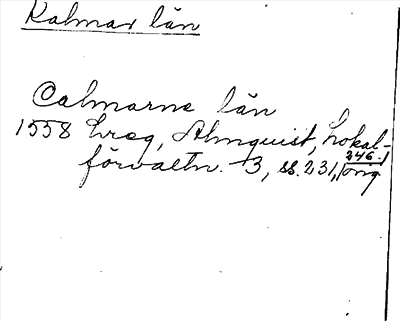 Kalmar län
Calmarne län
1558 hreg, Almquist, Lokal-
förvaltn. 3, ss. 231, 246.